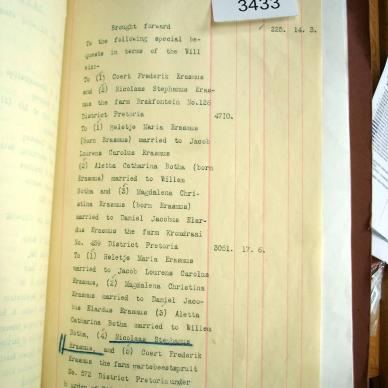 3433
Brought forward 225. 14. 3.
To the following special be-
quests in terms of the Will
viz:-
To (1) Coert Frederik Erasmus
and (2) Nicolaas Stephanus Eras-
mus the farm Brakfontein No.126
District Pretoria 4710.
To (1) Heletje Maria Erasmus
(born Erasmus) married to Jacob
Lourens Carolus Erasmus
(2) Aletta Catharina Botha (born
Erasmus) married to Willem
Botha and (3) Magdalena Chri-
stina Erasmus (born Erasmus)
married to Daniel Jacobus Elar-
dus Erasmus the farm Kromdraai
No. 459 District Pretoria 3051. 17. 6.
To (1) Heletje Maria Erasmus
married to Jacob Lourens Carolus
Erasmus, (2) Magdalena Christina
Erasmus married to Daniel Jaco-
bus Elardus Erasmus (3) Aletta
Catharina Botha married to Willem
Botha, (4) Nicolaas Stephanus
Erasmus, and (5) Coert Frederik
Erasmus the farm Hartebeestspruit
No. 572 District Pretoria under